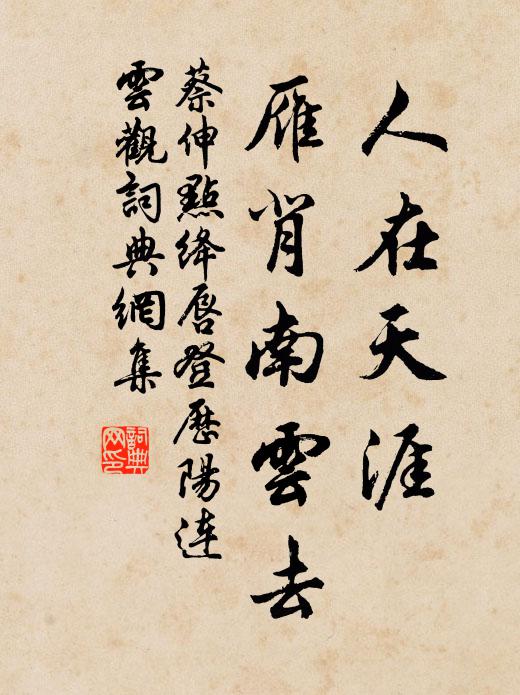 人在天涯
雁背南雲去
蔡伸點絳唇登歷陽連
雲觀詞典網集
詞典
网印